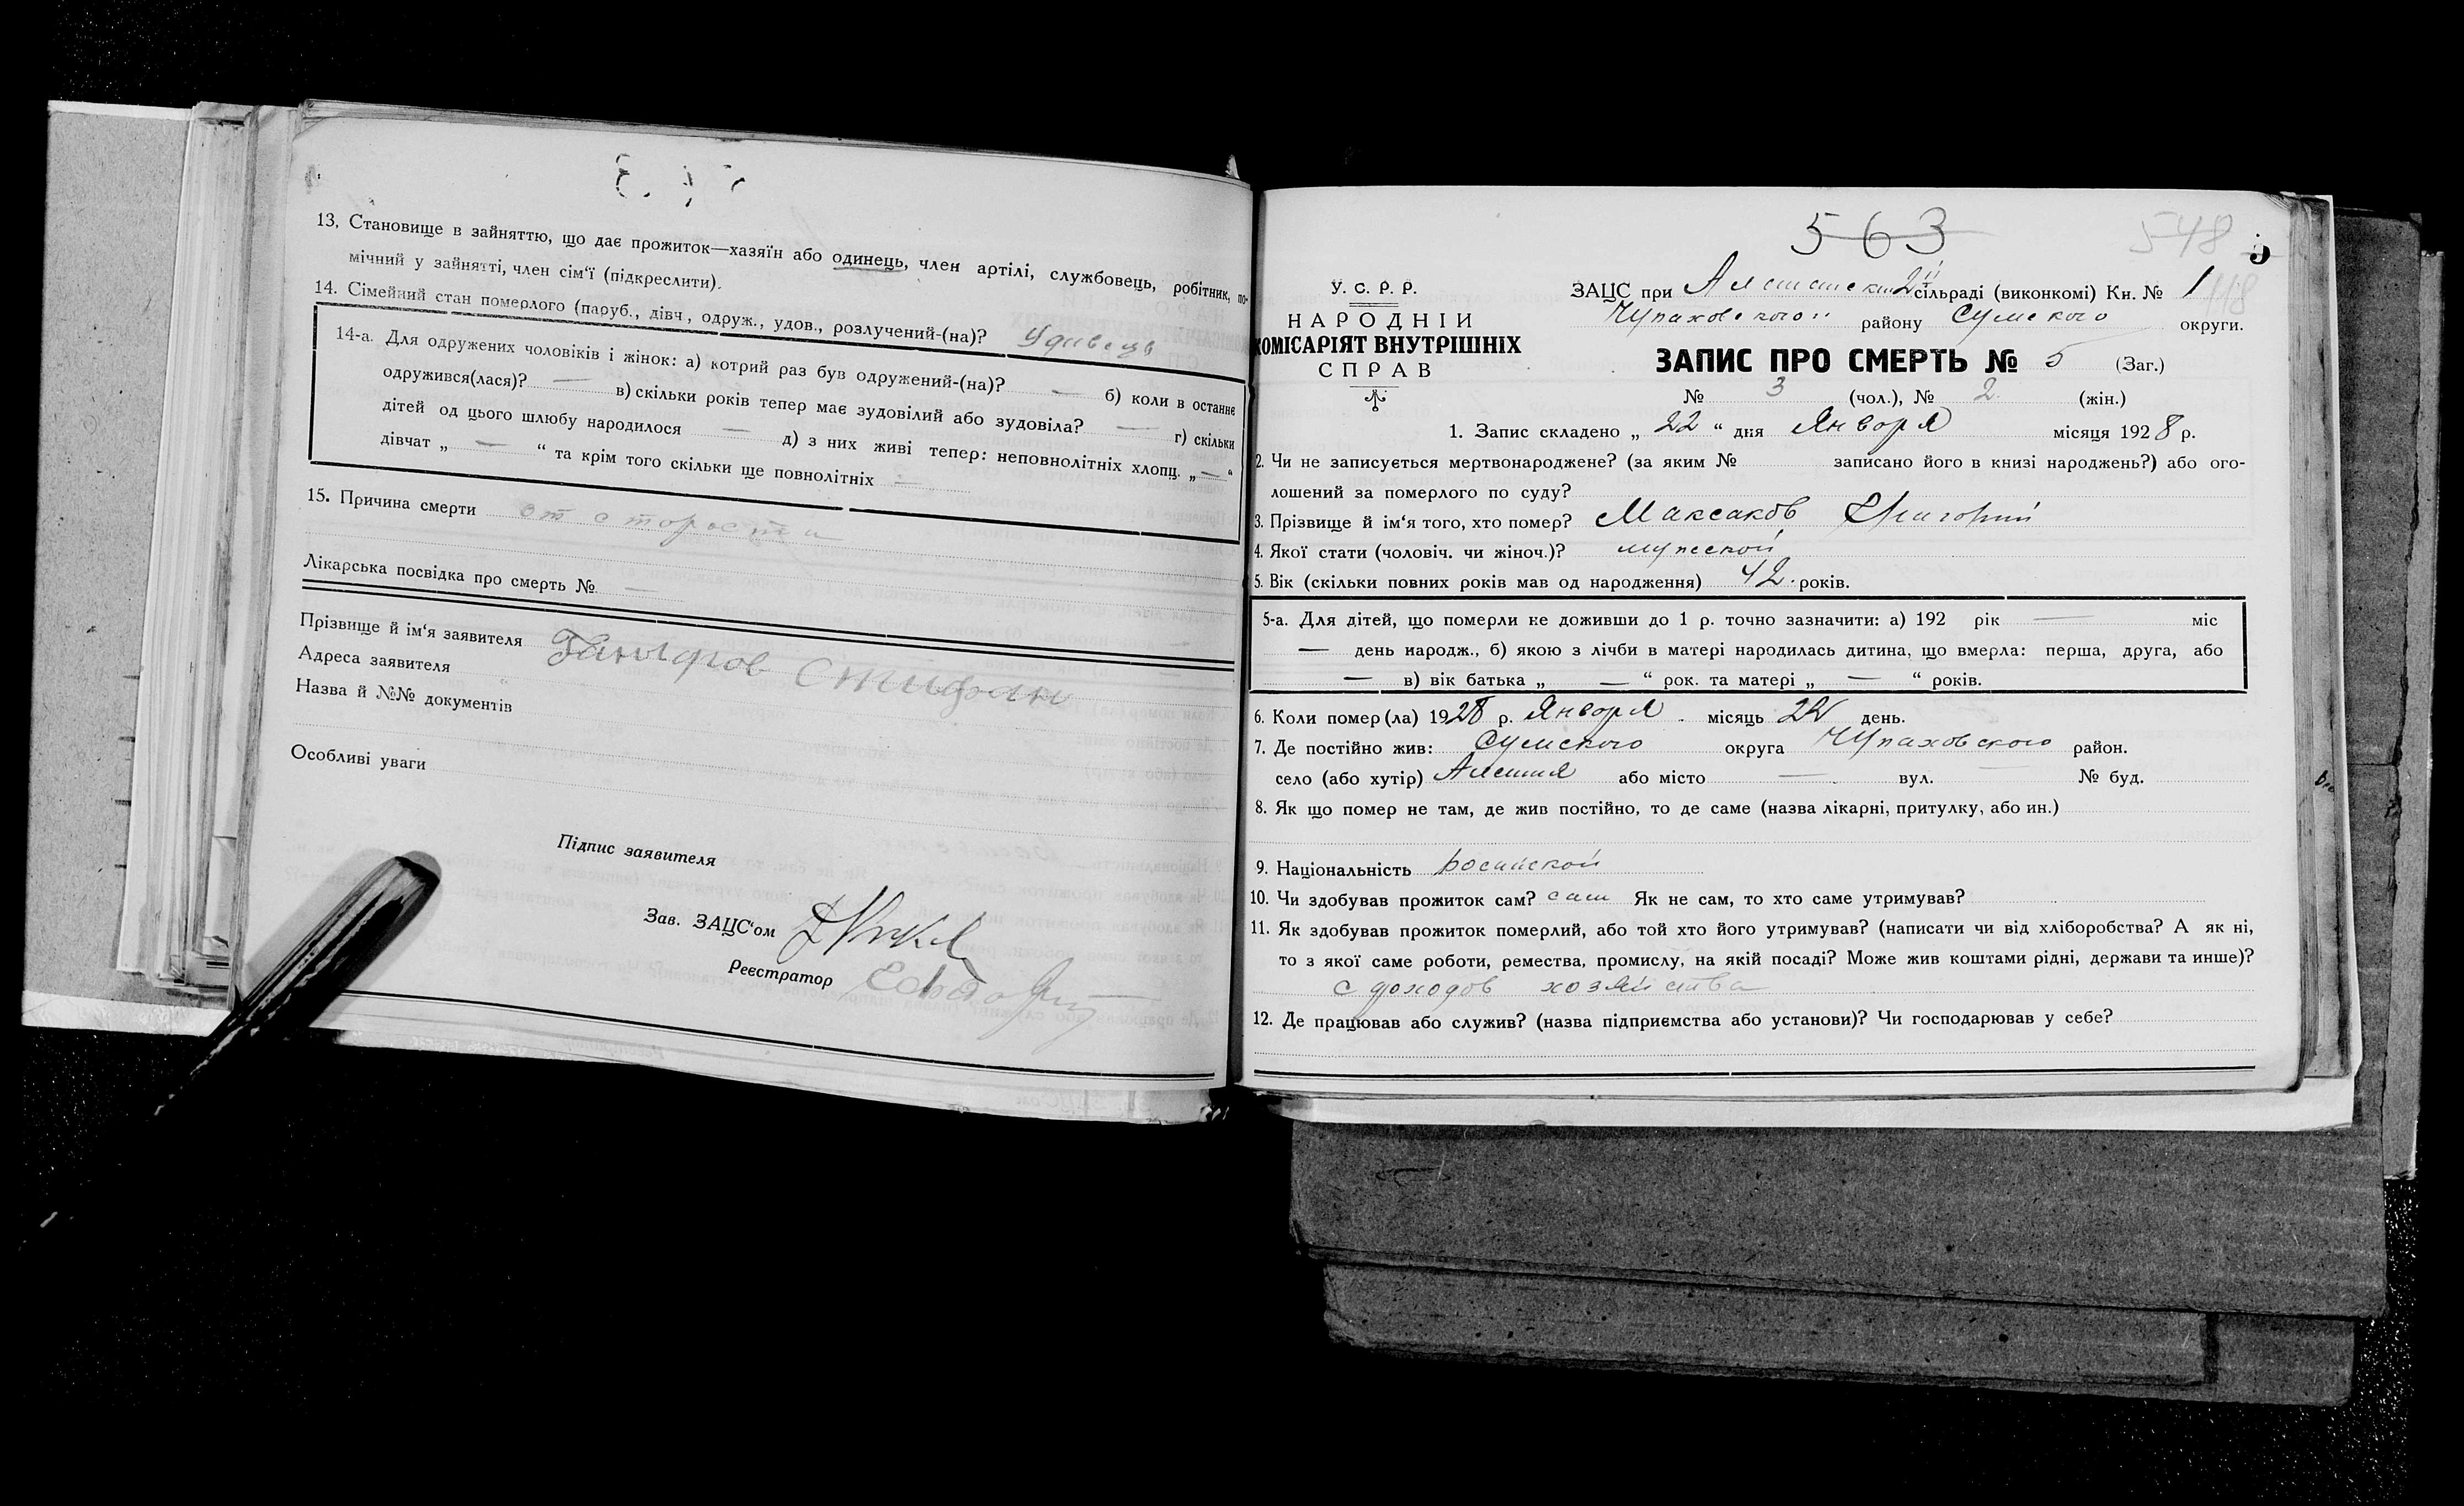 13. Становище в зайняттю, що дає прожиток—хазяїн або одинець, член артілі, службовець, робітник, по-
мічний у зайнятті, член сім'ї (підкреслити).
14. Сімейний стан померлого (паруб., дівч., одруж., удов., розлучений-(на)? Удивець
14-а. Для одружених чоловіків і жінок: а) котрий раз був одружений-(на)? — б) коли в останнє
одружився(лася)? — в) скільки років тепер має зудовілий або зудовіла? — г) скільки
дітей од цього шлюбу народилося — д) з них живі тепер: неповнолітніх хлопц. „ — “
дівчат „ — “ та крім того скільки ще повнолітніх —
15. Причина смерти от старости
Лікарська посвідка про смерть № —
Прізвище й ім'я заявителя Стифан
Адреса заявителя
Назва й №№ документів
Особливі уваги
Підпис заявителя
Зав. ЗАЦС'ом
Реєстратор
563
548
5
118
У. С. Р. Р.
НАРОДНІЙ
КОМІСАРІЯТ ВНУТРІШНІХ
СПРАВ
ЗАЦС при 2й сільраді (виконкомі) Кн. № 1
Чупаховского района району Сумского округи.
ЗАПИС ПРО СМЕРТЬ № 5 (Заг.)
№ 3 (чол.), № 2 (жін.)
1. Запис складено „ 22 “ дня Января місяця 1928 р.
2. Чи не записується мертвонароджене? (за яким № записано його в книзі народжень?) або ого-
лошений за померлого по суду?
3. Прізвище й ім'я того, хто помер? Максаков Григорий
4. Якої стати (чоловіч. чи жіноч.)? мужской
5. Вік (скільки повних років мав од народження) 42 років.
5-а. Для дітей, що померли не доживши до 1 р. точно зазначити: а) 192 рік — міс
— день народж., б) якою з лічби в матері народилась дитина, що вмерла: перша, друга, або
— в) вік батька „ — “ рок. та матері „ — “ років.
6. Коли помер(ла) 1928 р. Января місяць 22 день.
7. Де постійно жив: Сумского округа Чупаховского район.
село (або хутір) Алешня або місто — вул. — № буд.
8. Як що помер не там, де жив постійно, то де саме (назва лікарні, притулку, або ин.)
9. Національність росийской
10. Чи здобував прожиток сам? сам Як не сам, то хто саме утримував?
11. Як здобував прожиток померлий, або той хто його утримував? (написати чи від хліборобства? А як ні,
то з якої саме роботи, ремества, промислу, на якій посаді? Може жив коштами рідні, держави та инше)?
с доходов хозяйства
12. Де працював або служив? (назва підприємства або установи)? Чи господарював у себе?